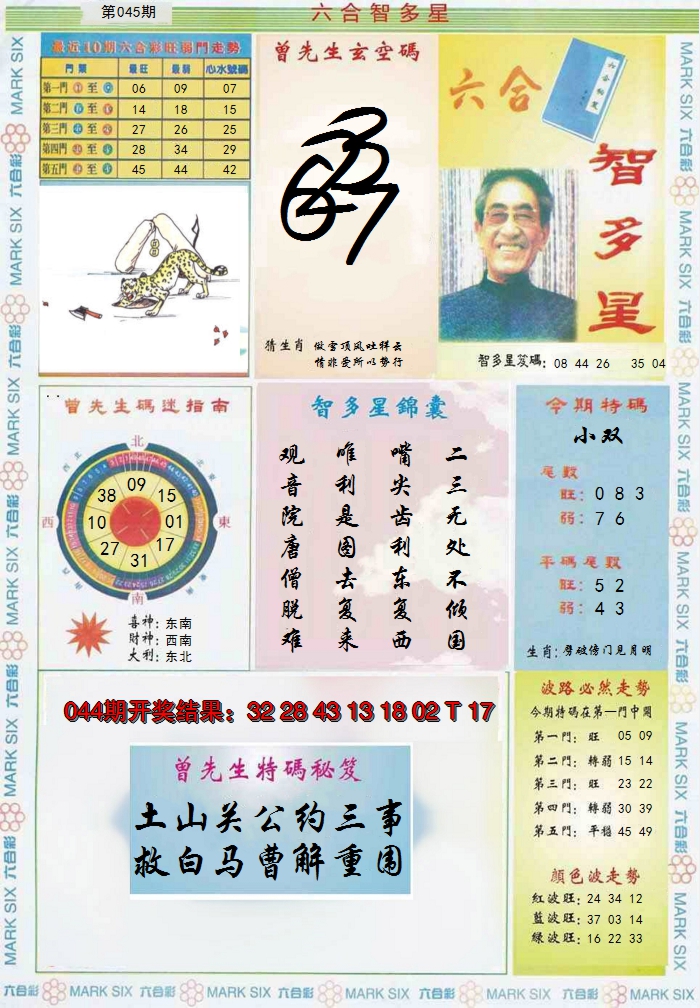 第045期
六合智多星
最近10期六合彩旺弱門走勢
門類 最旺 最弱 心水號碼
第一門 至 06 09 07
第二門 至 14 18 15
第三門 至 27 26 25
第四門 至 28 34 29
第五門 至 45 44 42
曾先生玄空碼
猜生肖 傲雪顶风吐祥云
情非爱所以势行
六合
智多星
智多星笈碼: 08 44 26 35 04
曾先生碼迷指南
北
西 東
南
09
15
01
17
31
27
10
38
喜神: 东南
財神: 西南
大利: 东北
智多星錦囊
二三无处不倾国
嘴尖齿利东复西
唯利是图去复来
观音院唐僧脱难
今期特碼
小双
尾數
旺: 0 8 3
弱: 7 6
平碼尾數
旺: 5 2
弱: 4 3
生肖: 劈破傍门见月明
044期开奖结果: 32 28 43 13 18 02 T 17
曾先生特碼秘笈
土山关公约三事
救白马曹解重围
波路必然走勢
今期特碼在第一門中開
第一門: 旺 05 09
第二門: 轉弱 15 14
第三門: 旺 23 22
第四門: 轉弱 30 39
第五門: 平穩 45 49
顏色波走勢
紅波旺: 24 34 12
藍波旺: 37 03 14
綠波旺: 16 22 33
MARK SIX 六合彩 MARK SIX 六合彩 MARK SIX 六合彩 MARK SIX 六合彩 MARK SIX 六合彩